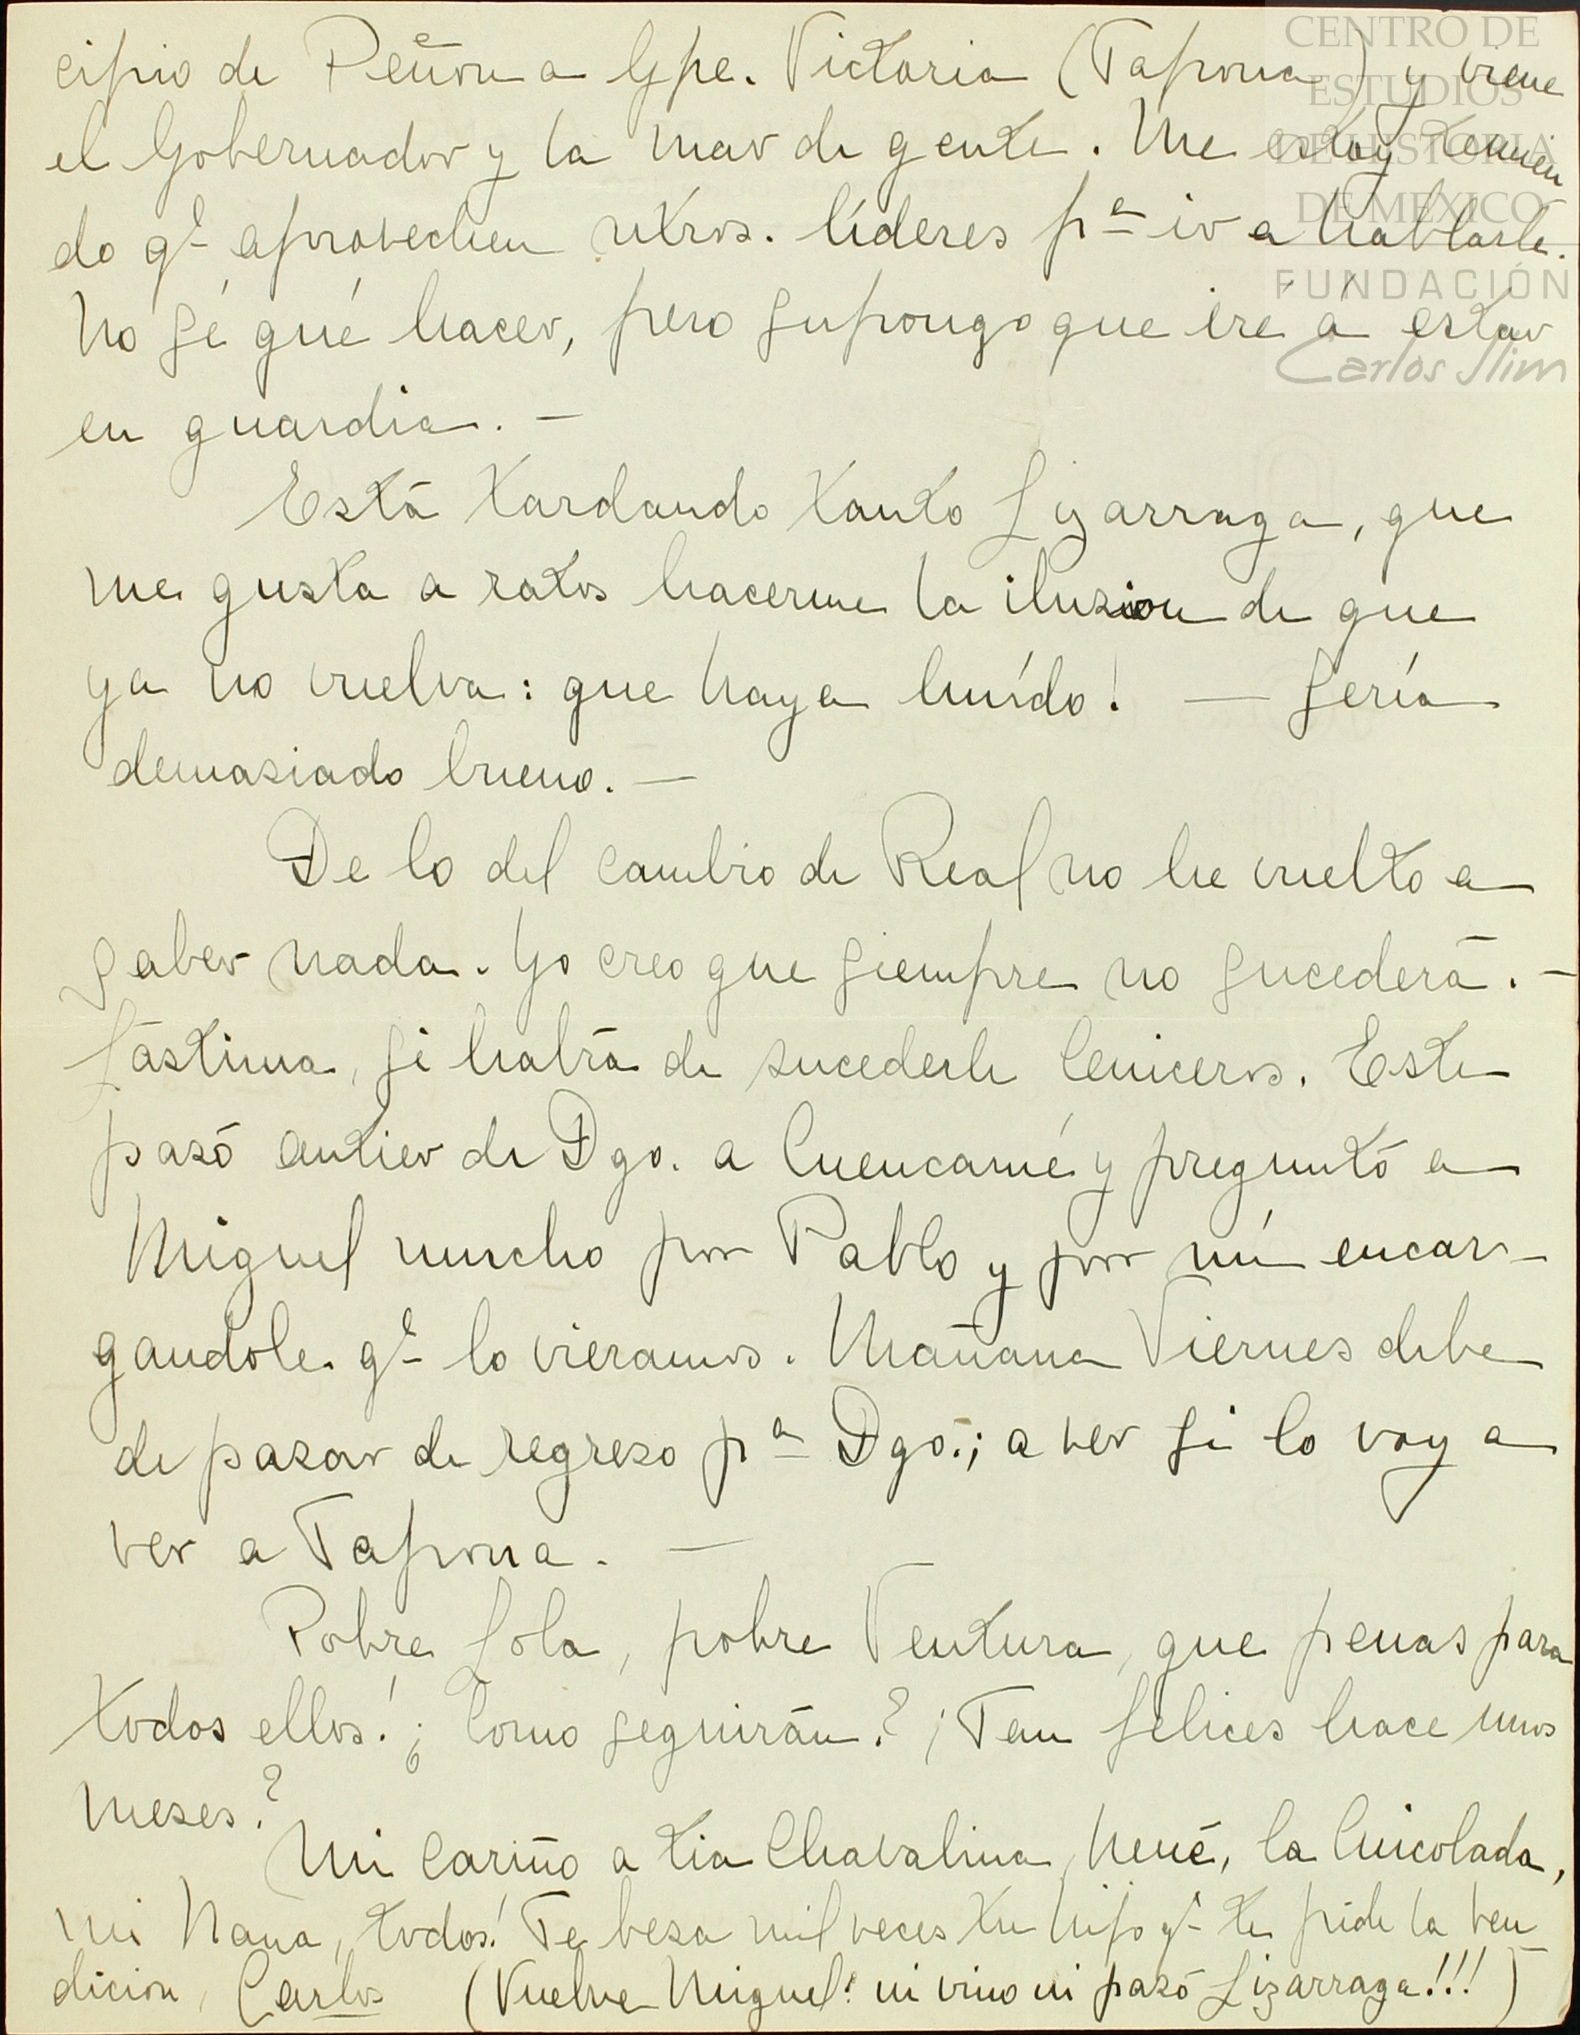 cipio de Peñon a Gpe. Victoria (Tapona) y viene
el Gobernador y la mar de gente. Me estoy temien
do qᵉ aprovechen ntros. líderes pᵃ ir a hablarle.
No sé qué hacer, pero supongo que iré á estar
en guardia. —
Está tardando tanto Lizarraga, que
me gusta a ratos hacerme la ilusion de que
ya no vuelva: que haya huído! — Sería
demasiado bueno. —
De lo del cambio de Real no he vuelto a
saber nada. Yo creo que siempre no sucederá. —
Lástima, si habrá de sucederle Ceniceros. Este
pasó antier de Dgo. a Cuencamé y preguntó a
Miguel mucho por Pablo y por mí encar-
gandole qᵉ lo vieramos. Mañana Viernes debe
de pasar de regreso pᵃ Dgo.; a ver si lo voy a
ver a Tapona. —
Pobre Lola, pobre Ventura, que penas para
todos ellos! ¿Como seguirán? ¡Tan felices hace unos
meses?
Mi cariño a tia Chavalina, Nené, la Nicolada,
mi Nana, todos! Te besa mil veces tu hijo qᵉ te pide la ben
dicion, Carlos (Vuelve Miguel: ni vino ni pasó Lizarraga!!!)
CENTRO DE
ESTUDIOS
DE HISTORIA
DE MEXICO
FUNDACIÓN
Carlos Slim